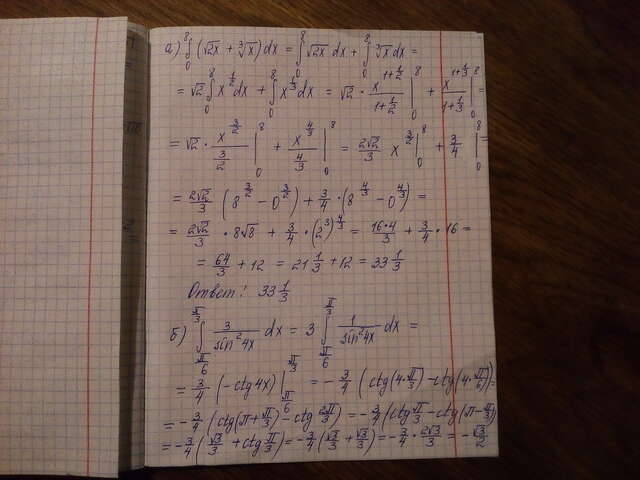 а) ∫₀⁸ (√2x + ∛x) dx = ∫₀⁸ √2x dx + ∫₀⁸ ∛x dx =
= √2 ∫₀⁸ x^(1/2) dx + ∫₀⁸ x^(1/3) dx = √2 · x^(1+1/2)/(1+1/2) |₀⁸ + x^(1+1/3)/(1+1/3) |₀⁸ =
= √2 · x^(3/2)/(3/2) |₀⁸ + x^(4/3)/(4/3) |₀⁸ = 2√2/3 x^(3/2) |₀⁸ + 3/4 |₀⁸ =
= 2√2/3 (8^(3/2) − 0^(3/2)) + 3/4 · (8^(4/3) − 0^(4/3)) =
= 2√2/3 · 8√8 + 3/4 · (2³)^(4/3) = 16·4/3 + 3/4 · 16 =
= 64/3 + 12 = 21 1/3 + 12 = 33 1/3
Ответ: 33 1/3
б) ∫_(π/6)^(π/3) 3/sin²4x dx = 3 ∫_(π/6)^(π/3) 1/sin²4x dx =
= 3/4 (−ctg4x) |_(π/6)^(π/3) = −3/4 (ctg(4·π/3) − ctg(4·π/6)) =
= −3/4 (ctg(π+π/3) − ctg 2π/3) = −3/4 (ctg π/3 − ctg(π−π/3)
= −3/4 (√3/3 + ctg π/3) = −3/4 (√3/3 + √3/3) = −3/4 · 2√3/3 = −√3/2